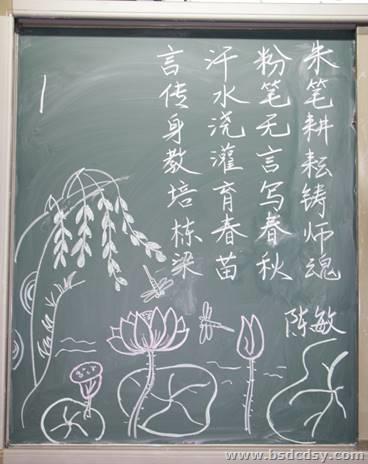 朱笔耕耘铸师魂
粉笔无言写春秋
汗水浇灌育春苗
言传身教培栋梁
陈敏
www.bsdcdsy.com